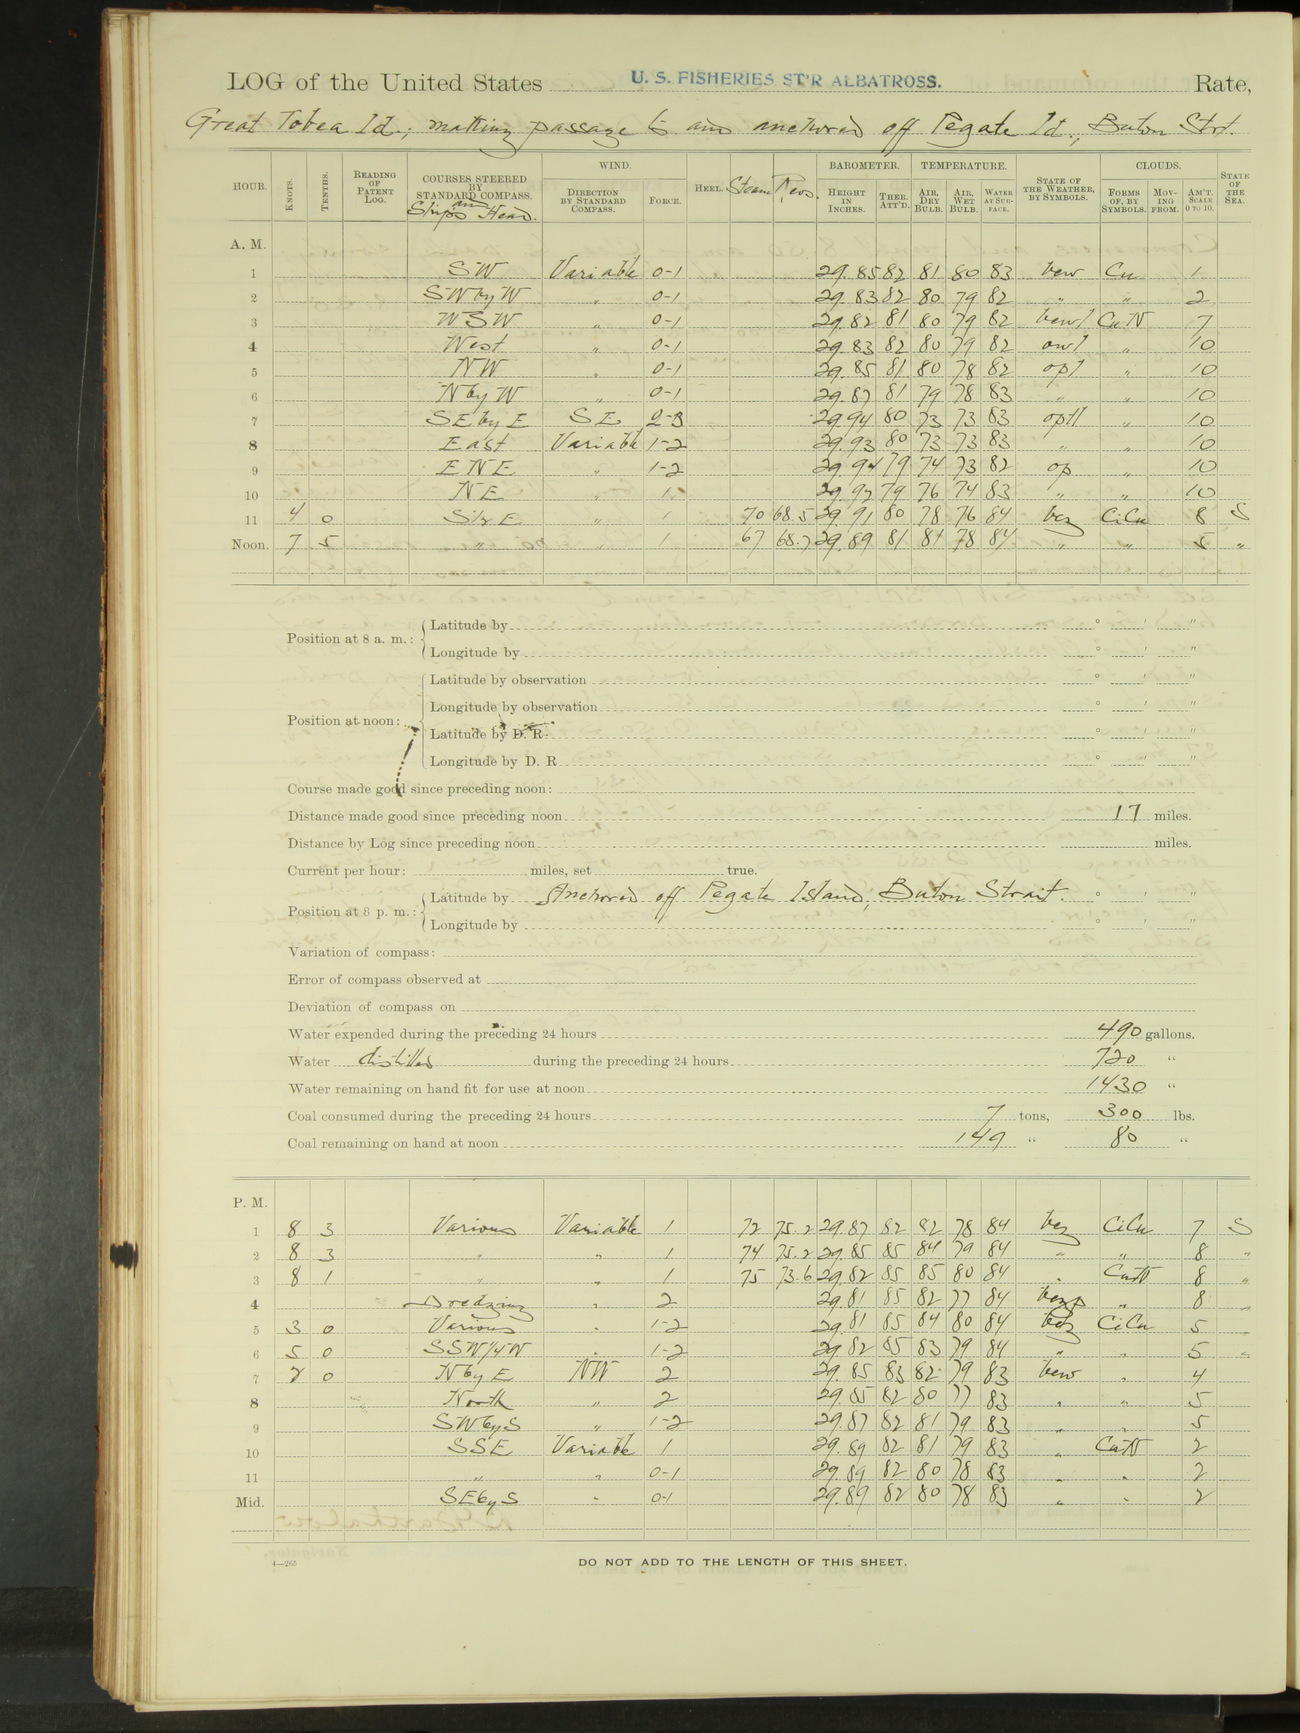 LOG of the United States U. S. FISHERIES ST'R ALBATROSS. Rate,
Great Tobea Id.; making passage to and anchored off Pegate Id., Buton Strt.
HOUR. KNOTS. TENTHS. READING OF PATENT LOG. COURSES STEERED BY STANDARD COMPASS. and Ships Head. WIND. DIRECTION BY STANDARD COMPASS. FORCE. HEEL. Steam Revs. BAROMETER. HEIGHT IN INCHES. THER. ATT'D. TEMPERATURE. AIR, DRY BULB. AIR, WET BULB. WATER AT SURFACE. STATE OF THE WEATHER, BY SYMBOLS. CLOUDS. FORMS OF, BY SYMBOLS. MOVING FROM. AM'T. SCALE 0 TO 10. STATE OF THE SEA.
A. M.
1 SW Variable 0-1 29.85 82 81 80 83 bcw Cu 1
2 SW by W " 0-1 29.83 82 80 79 82 " " 2
3 WSW " 0-1 29.82 81 80 79 82 bcwl CuN 7
4 West " 0-1 29.83 82 80 79 82 owl " 10
5 NW " 0-1 29.85 81 80 78 82 opl " 10
6 N by W " 0-1 29.87 81 79 78 83 " " 10
7 SE by E SE 2-3 29.94 80 73 73 83 optl " 10
8 East Variable 1-2 29.93 80 73 73 83 " " 10
9 ENE " 1-2 29.94 79 74 73 82 op " 10
10 NE 1 29.92 79 76 74 83 " " 10
11 4 0 S½E " 1 70 68.5 29.91 80 78 76 84 bcz CiCu 8 S
Noon. 7 5 " " 1 67 68.7 29.89 81 81 78 84 " " 5 "
Position at 8 a. m.: Latitude by ° ' "
Longitude by ° ' "
Position at noon: Latitude by observation ° ' "
Longitude by observation ° ' "
Latitude by D. R. ° ' "
Longitude by D. R ° ' "
Course made good since preceding noon:
Distance made good since preceding noon 17 miles.
Distance by Log since preceding noon miles.
Current per hour: miles, set true.
Position at 8 p. m.: Latitude by Anchored off Pegate Island, Buton Strait. ° ' "
Longitude by ° ' "
Variation of compass:
Error of compass observed at
Deviation of compass on
Water expended during the preceding 24 hours 490 gallons.
Water distilled during the preceding 24 hours 720 "
Water remaining on hand fit for use at noon 1430 "
Coal consumed during the preceding 24 hours 7 tons, 300 lbs.
Coal remaining on hand at noon 149 " 80 "
P. M.
1 8 3 Various Variable 1 72 75.2 29.87 82 82 78 84 bcz CiCu 7 S
2 8 3 " " 1 74 75.2 29.85 85 84 79 84 " " 8 "
3 8 1 " " 1 75 73.6 29.82 85 85 80 84 " CuN 8 "
4 Dredging " 2 29.81 85 82 77 84 bczp " 8 "
5 3 0 Various " 1-2 29.81 85 84 80 84 bcz CiCu 5 "
6 5 0 SSW¼W " 1-2 29.82 85 83 79 84 " " 5 "
7 2 0 N by E NW 2 29.85 83 82 79 83 bcw " 4
8 North " 2 29.85 82 80 77 83 " " 5
9 SW by S " 1-2 29.87 82 81 79 83 " " 5
10 SSE Variable 1 29.89 82 81 79 83 " CuN 2
11 " " 0-1 29.89 82 80 78 83 " " 2
Mid. SE by S " 0-1 29.89 82 80 78 83 " " 2
4—265
DO NOT ADD TO THE LENGTH OF THIS SHEET.